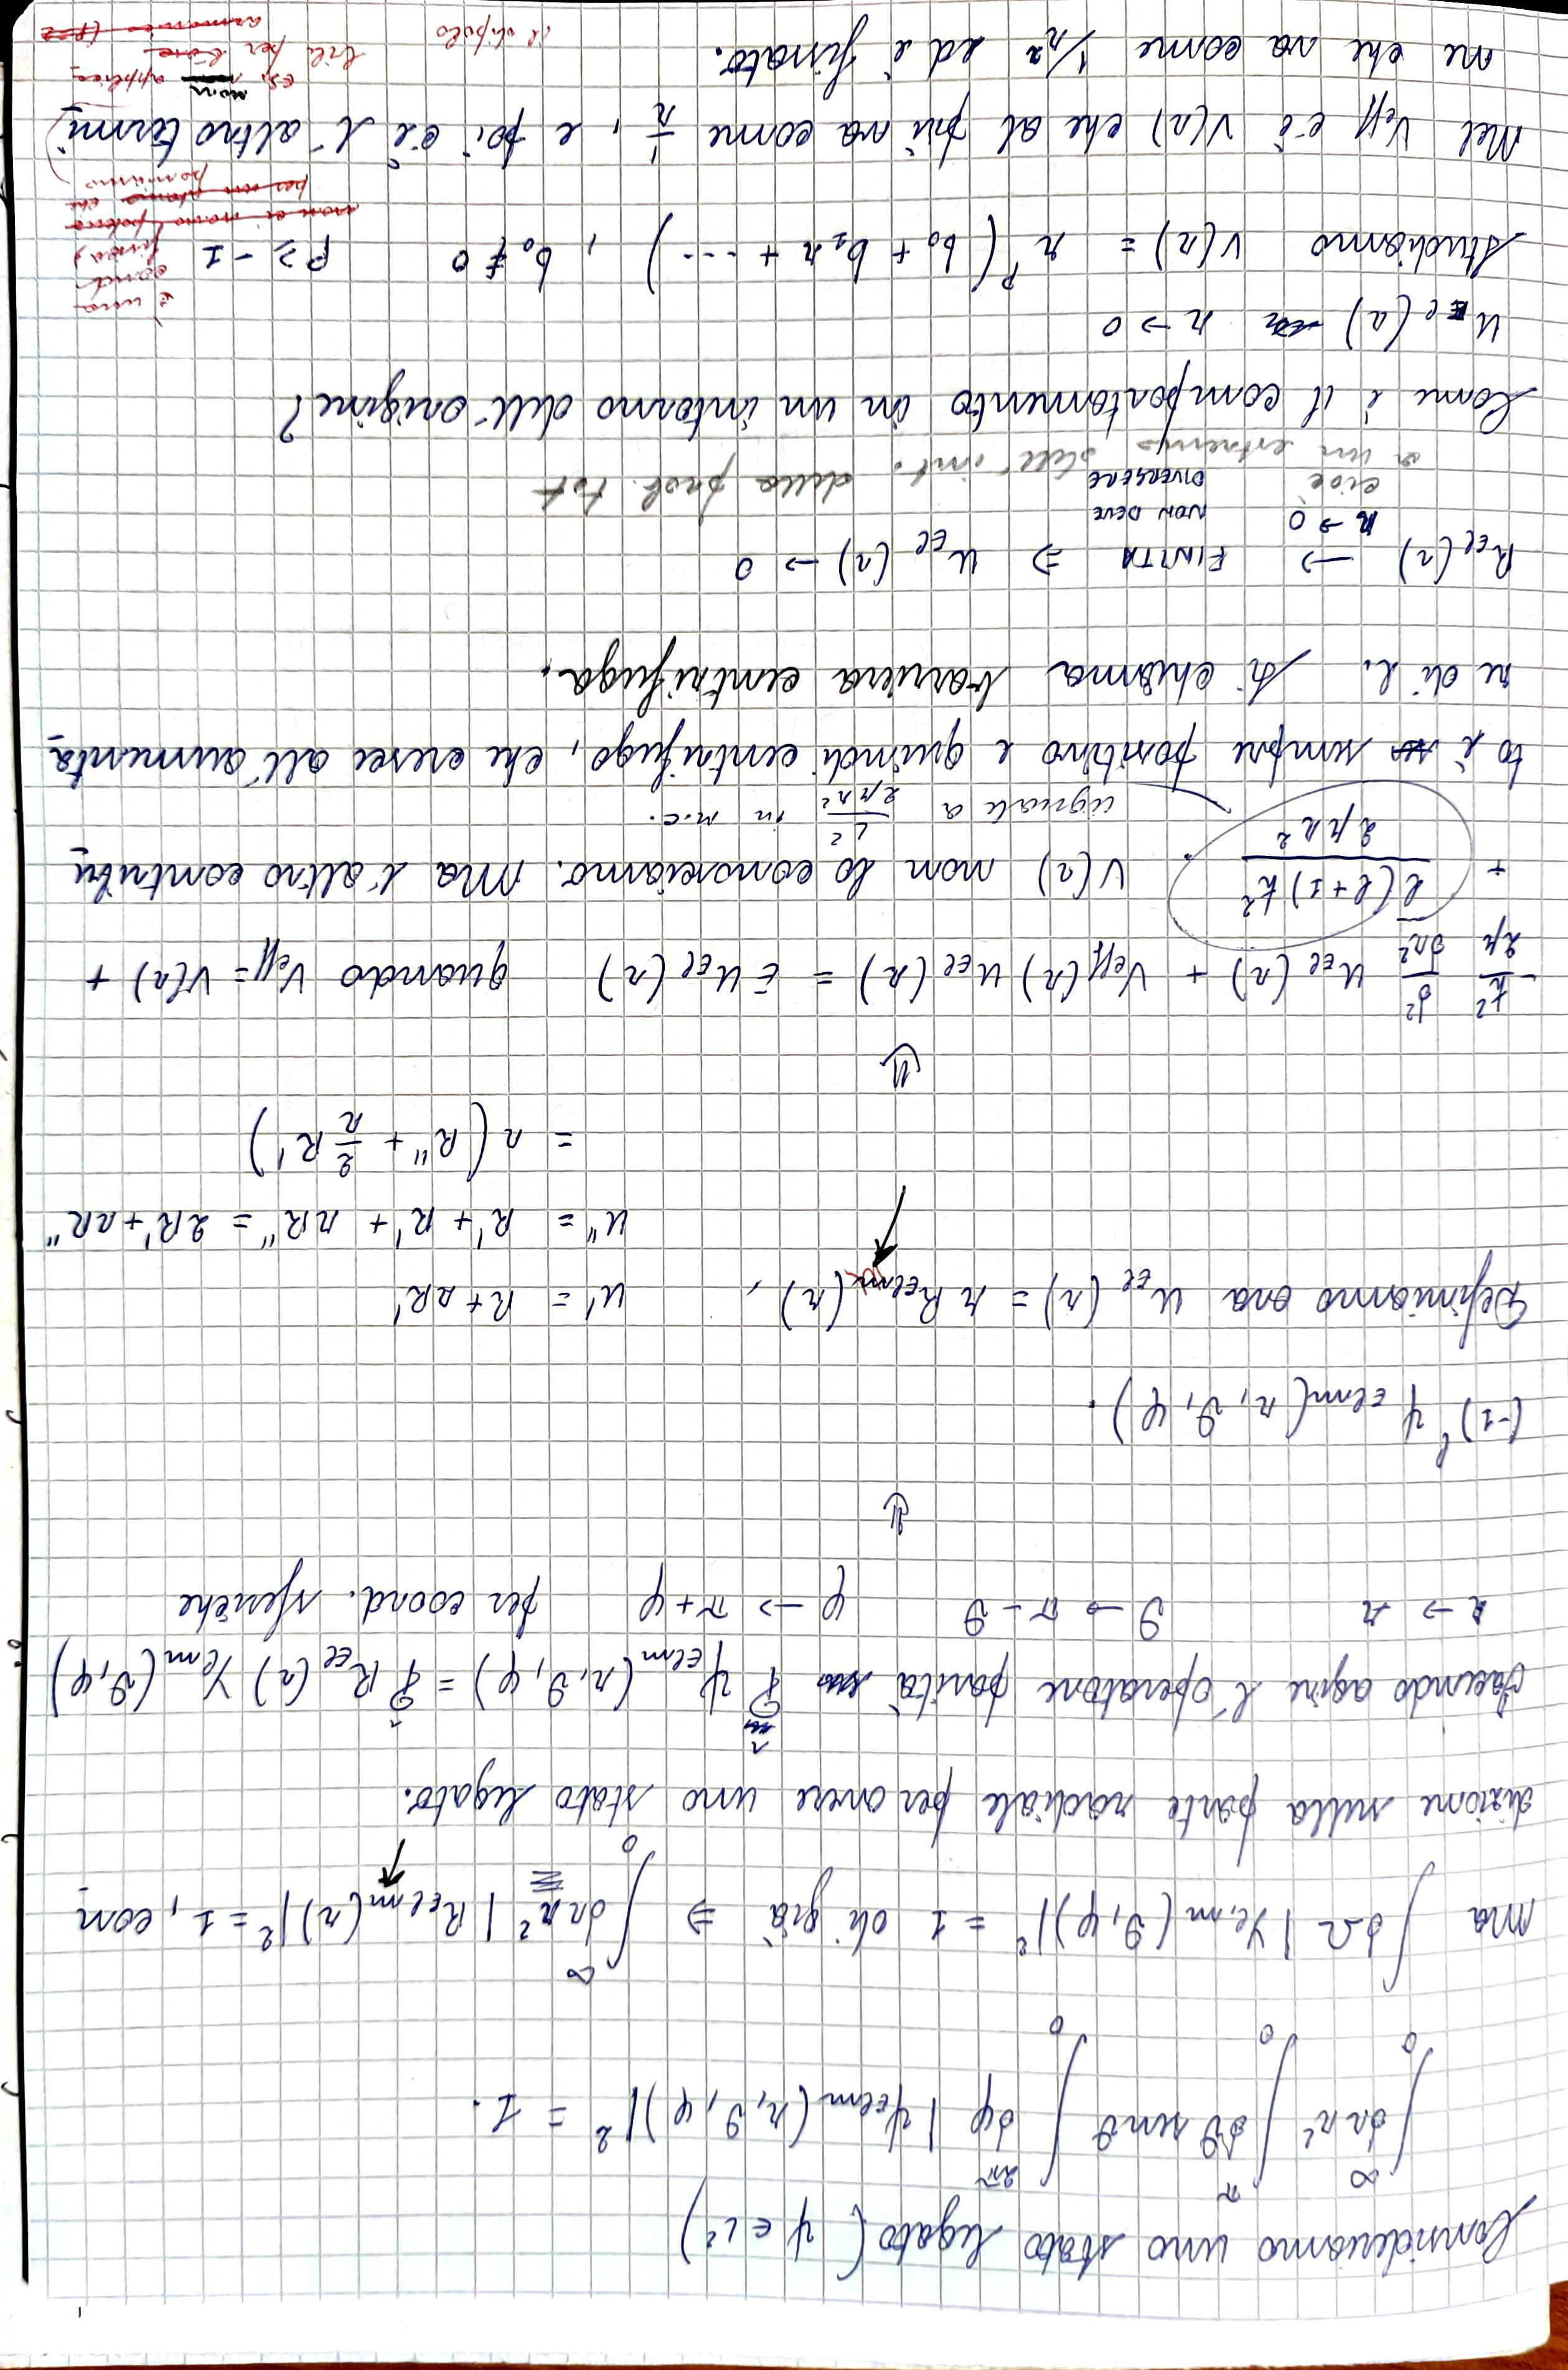 Consideriamo uno stato legato (ψ ∈ L²)
∫₀^∞ dr r² ∫₀^π dϑ senϑ ∫₀^2π dφ |ψ_Elm (r, ϑ, φ)|² = 1.
Ma ∫ dΩ |Y_l,m (ϑ, φ)|² = 1 di già ⇒ ∫₀^∞ dr r² |R_Elm (r)|² = 1, con
dizione sulla parte radiale per avere uno stato legato.
Facendo agire l'operatore parità P̂ ψ_Elm (r, ϑ, φ) = P̂ R_El (r) Y_lm (ϑ, φ)
r → r ϑ → π - ϑ φ → π + φ per coord. sferiche
⇓
(-1)^l ψ_Elm (r, ϑ, φ).
Definiamo ora u_El (r) = r R_Elm (r), u' = R + rR'
u'' = R' + R' + rR'' = 2R' + rR''
= r (R'' + 2/r R')
⇓
- ħ²/2μ d²/dr² u_El (r) + V_eff (r) u_El (r) = E u_El (r) quando V_eff = V(r) +
+ l(l+1)ħ²/2μr² . V(r) non lo conosciamo. Ma l'altro contribu
uguale a L²/2μr² in m.c.
to è sempre positivo e quindi centrifugo, che cresce all'aumenta
re di l. Si chiama barriera centrifuga.
R_El (r) → FINITA ⇒ u_El (r) → 0
r → 0 NON DEVE DIVERGERE
cioè a un estremo dell'int. della prob. tot
Come è il comportamento in un intorno dell'origine?
u_El (r) r → 0
Studiamo V(r) = r^p (b₀ + b₁r + ⋯) , b₀ ≠ 0 p ≥ -1
è una cond. fisica,
non ci sono potenze
Nel V_eff c'è V(r) che al più va come 1/r, e poi c'è l'altro termi
ne che va come 1/r² ed è fissato.
il dipolo